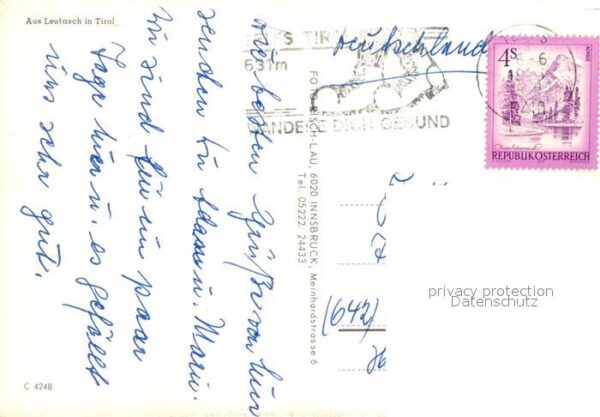 Aus Leutasch in Tirol
Die besten Grüße von hier
senden Euch u. Mani.
Wir sind für ein paar
Tage hier u. es gefällt
uns sehr gut.
C 4248
FOTO RISCH-LAU, 6020 INNSBRUCK, Meinhardstrasse 6
Tel. 05222 24433
TIROL
631m
WANDERE DICH GESUND
Deutschland
4S
REPUBLIK ÖSTERREICH
(642)
privacy protection
Datenschutz